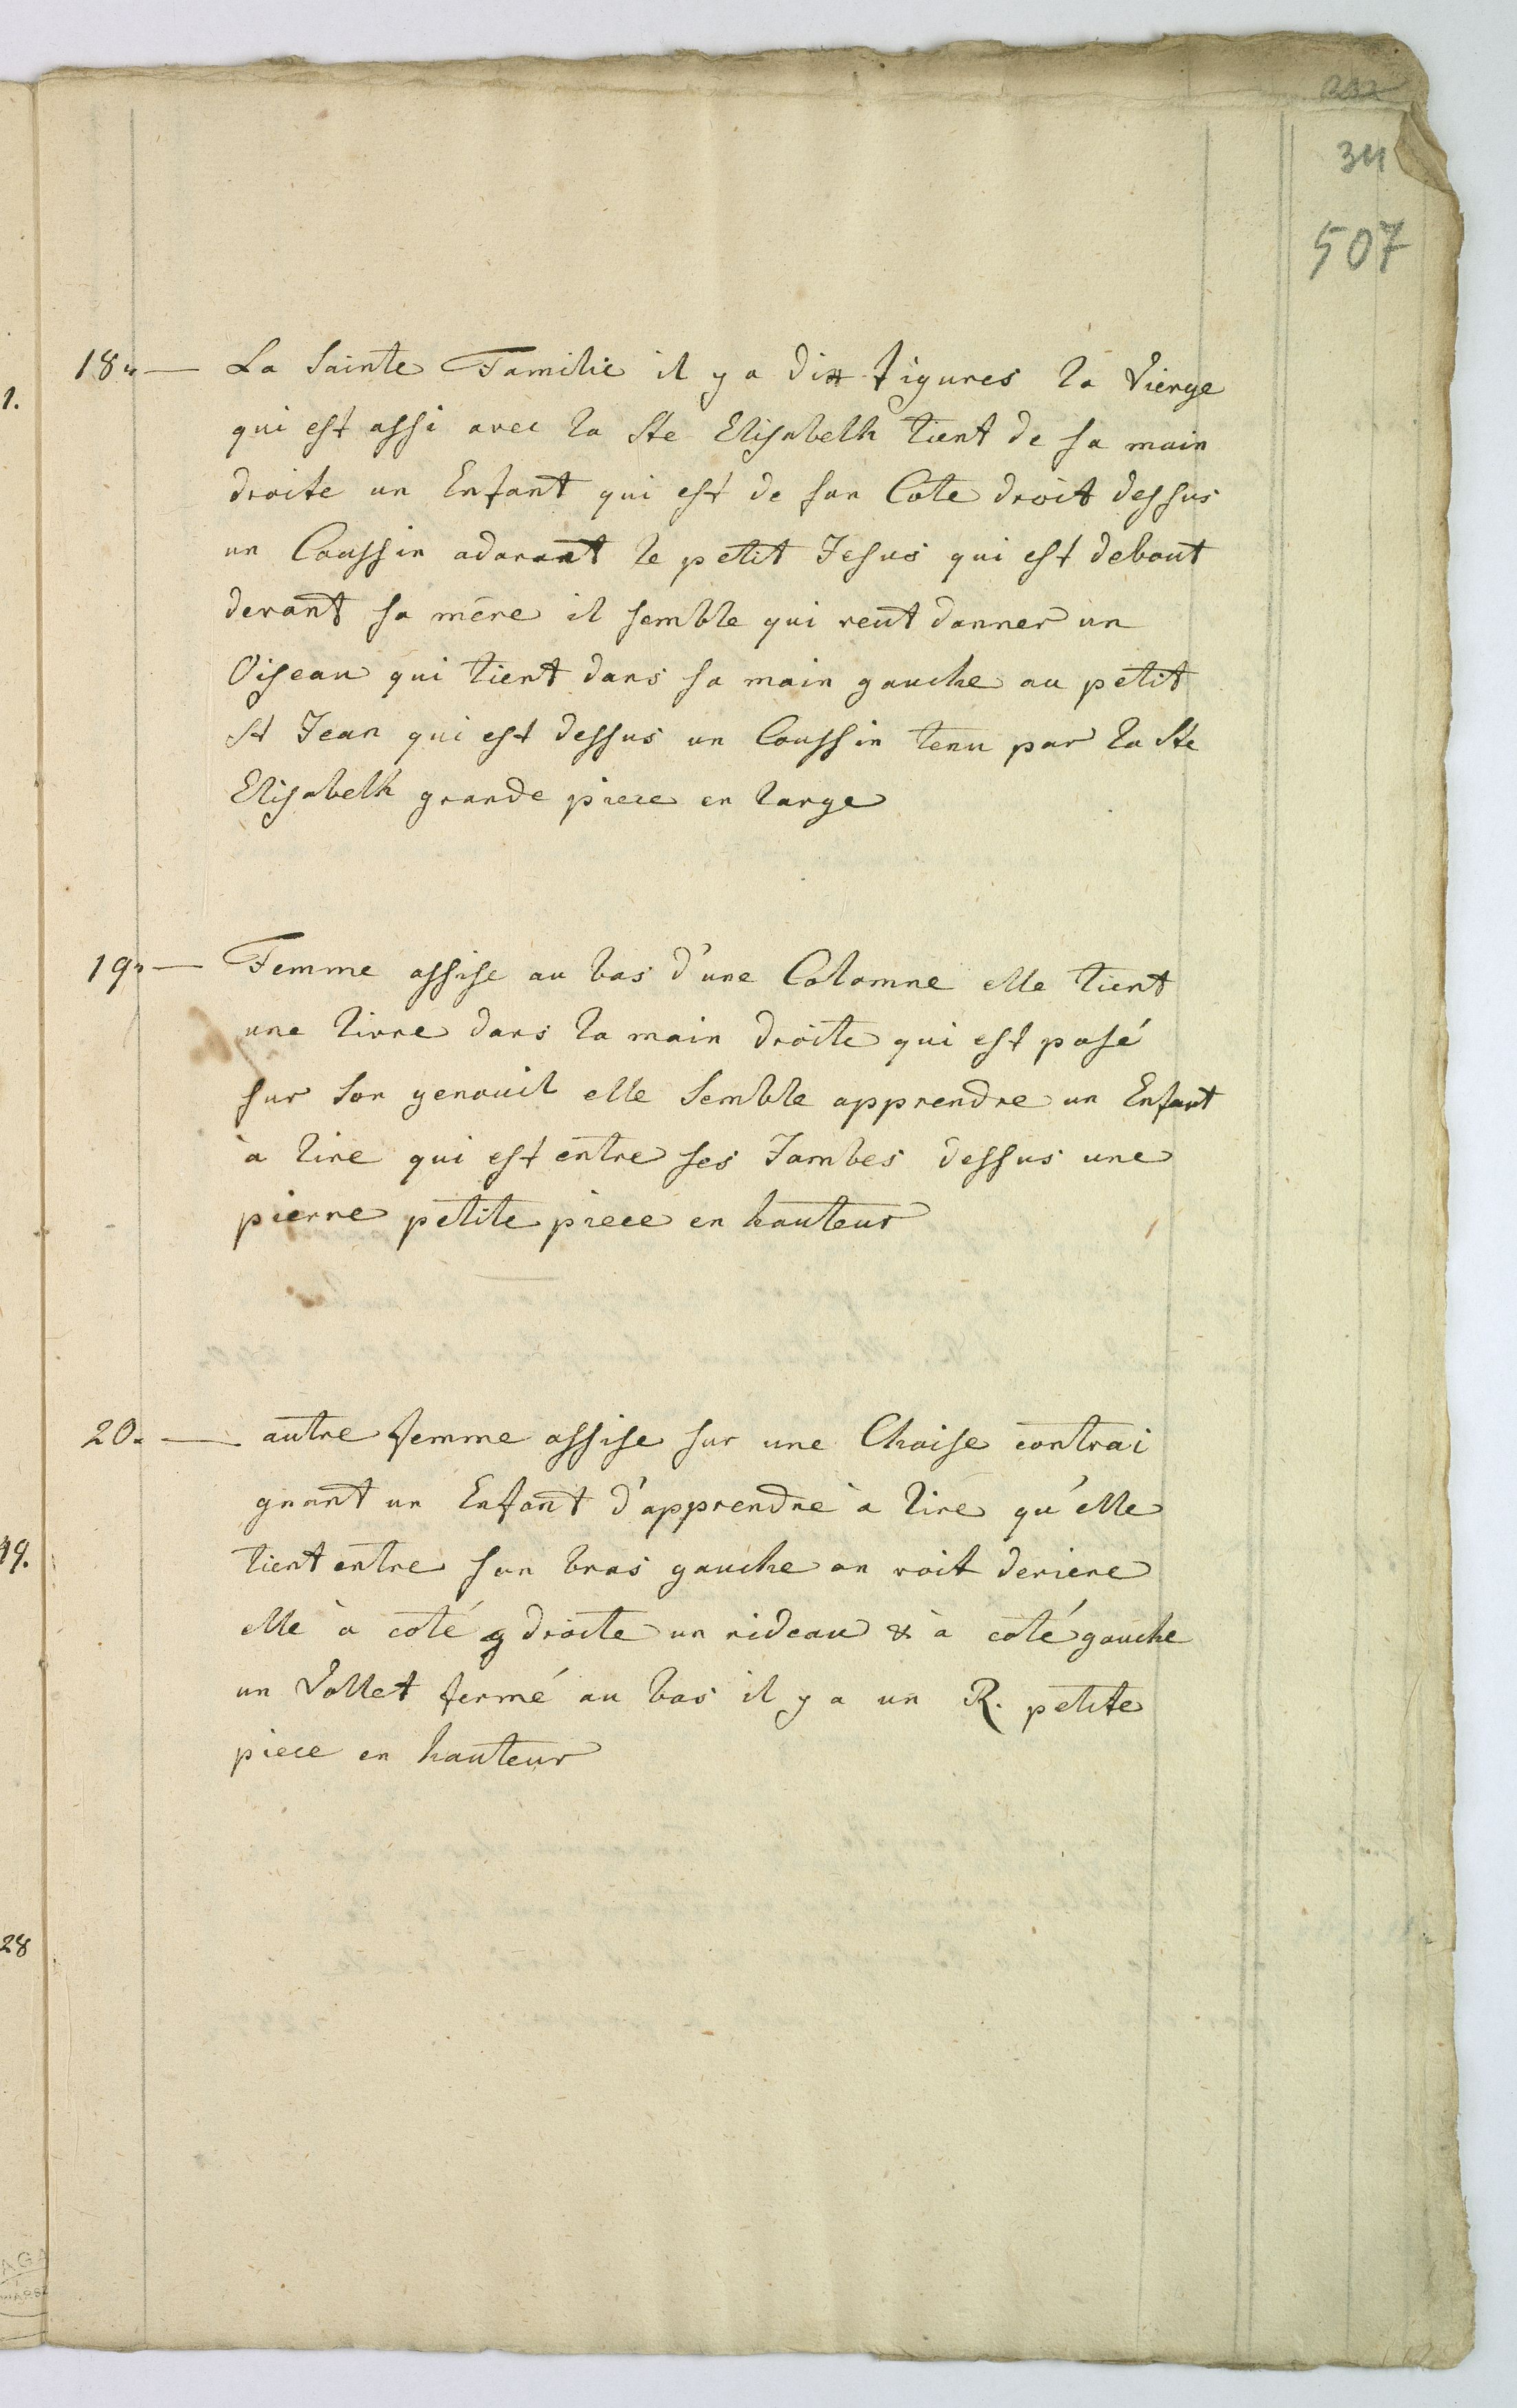 34
507
18. — La Sainte Familie il y a dix figures la Vierge
qui est assi avec la Ste Elisabeth tient de sa main
droite un Enfant qui est de son Cote droit dessus
un Coussin adorant le petit Jesus qui est debout
devant sa mére il semble qui veut donner un
Oiseau qui tient dans sa main gauche au petit
St Jean qui est dessus un Coussin tenu par la Ste
Elisabeth grande piece en large
19. — Femme assise au bas d'une Colomne elle tient
une livre dans la main droite qui est posé
sur son genouil elle semble apprendre un Enfant
à lire qui est entre ses Jambes dessus une
pierre petite piece en hauteur
20. — autre femme assise sur une Chaise contrai
gnant un Enfant d'apprendre à lire qu'elle
tient entre son bras gauche on voit deriere
elle à coté droite un rideau & à coté gauche
un Vollet fermé au bas il y a un R. petite
piece en hauteur
1.
19.
28